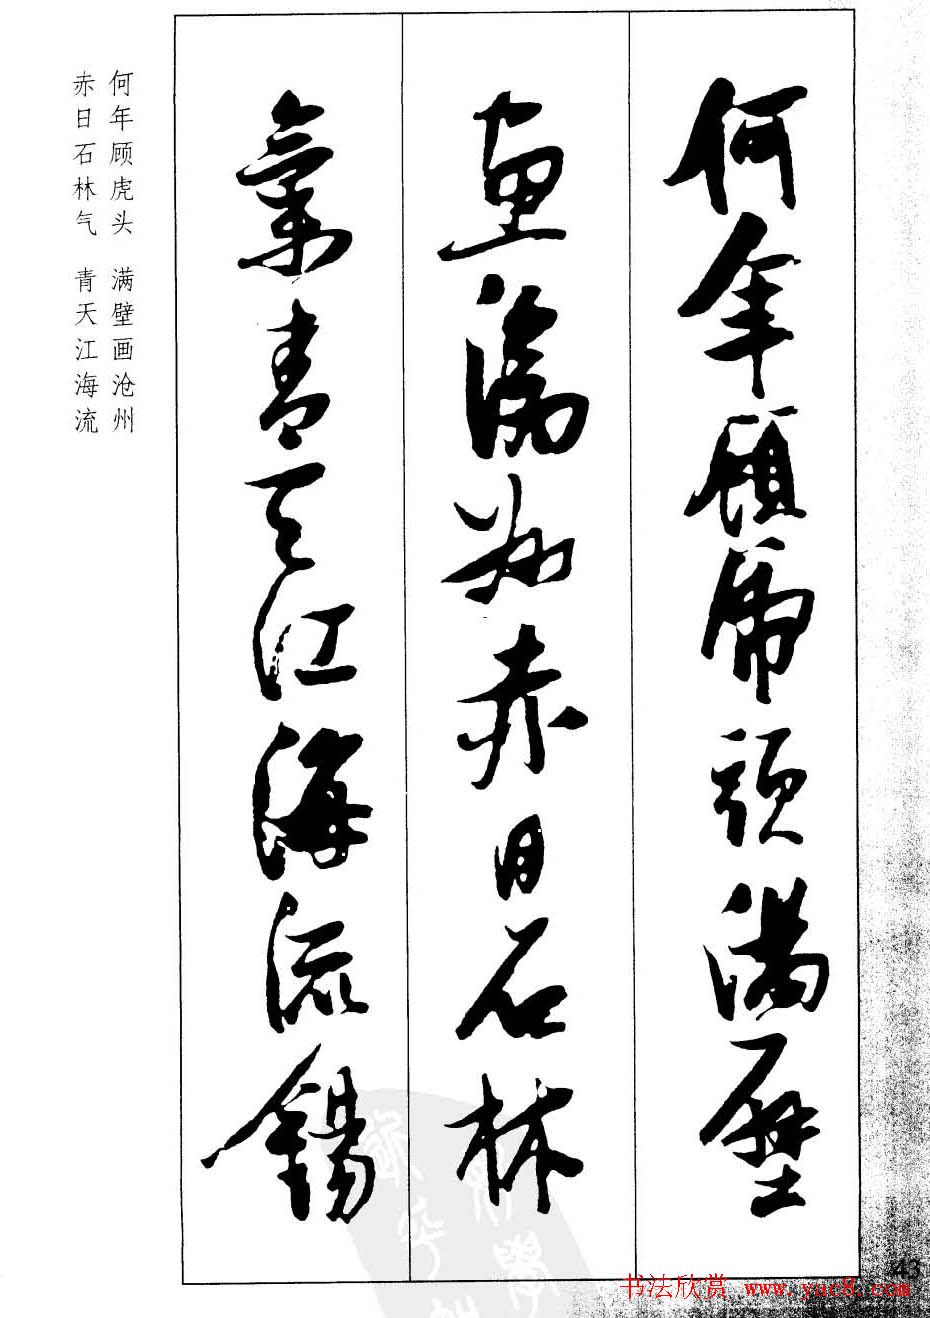 何年顧虎頭滿壁
畫滄州赤日石林
氣青天江海流錫
何年顾虎头 满壁画沧州
赤日石林气 青天江海流
43
书法欣赏 www.yac8.com